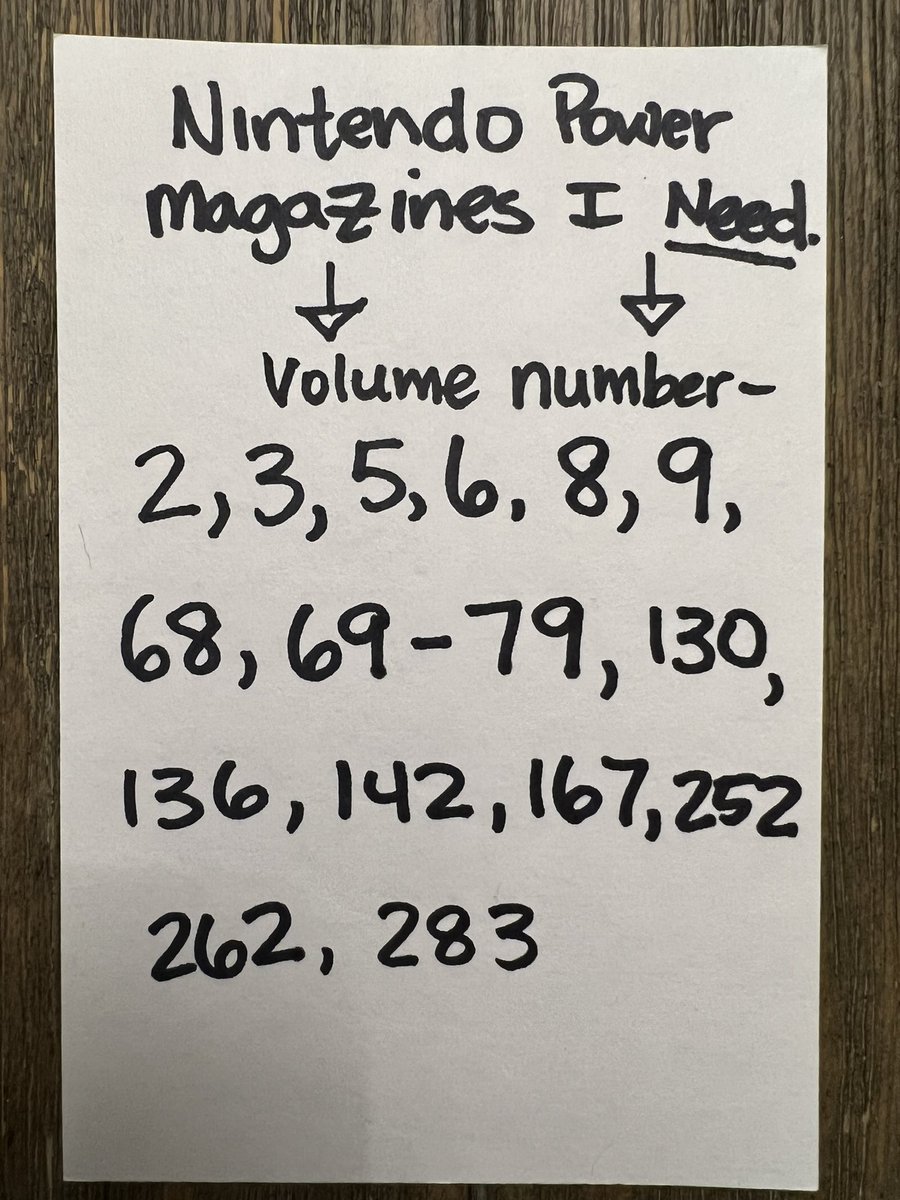 Nintendo Power
magazines I Need.
Volume number-
2, 3, 5, 6, 8, 9,
68, 69-79, 130,
136, 142, 167, 252
262, 283